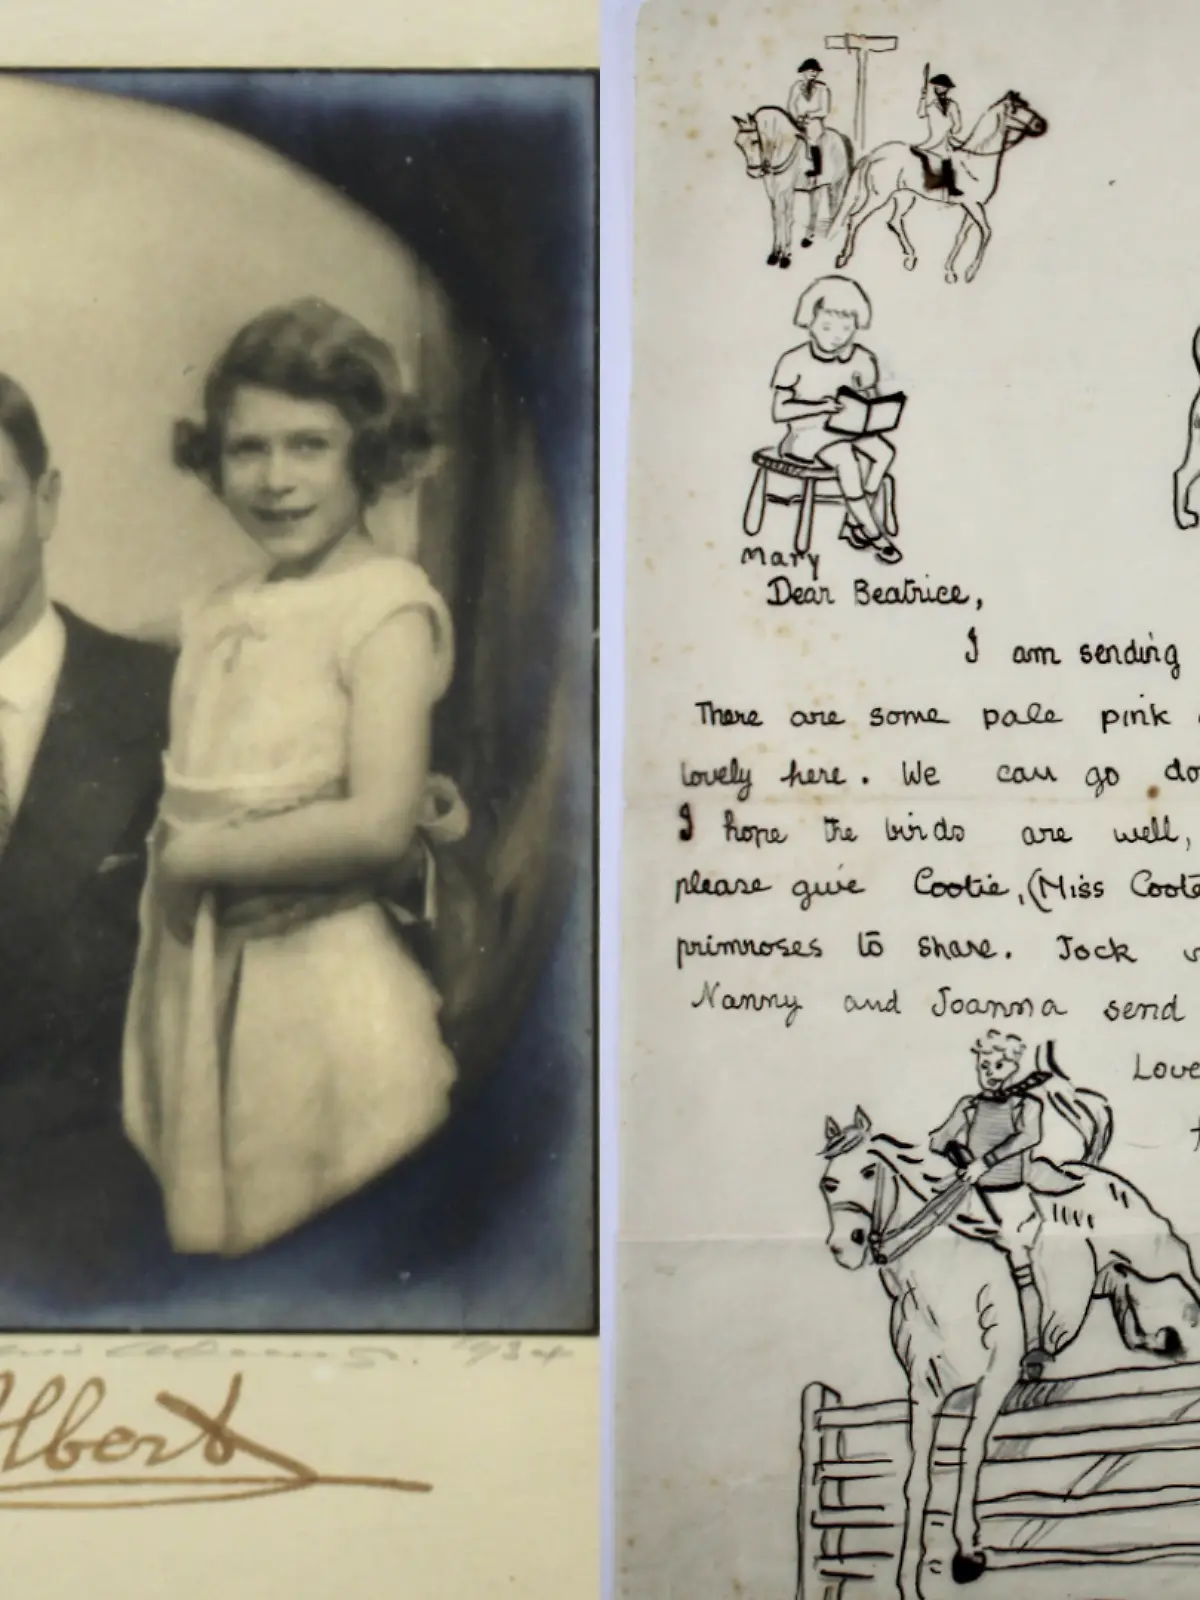 1934
Albert
Mary
Dear Beatrice,
I am sending
There are some pale pink
lovely here. We can go do
I hope the birds are well,
please give Cootie, (Miss Coote
primroses to share. Jock
Nanny and Joanna send
Love